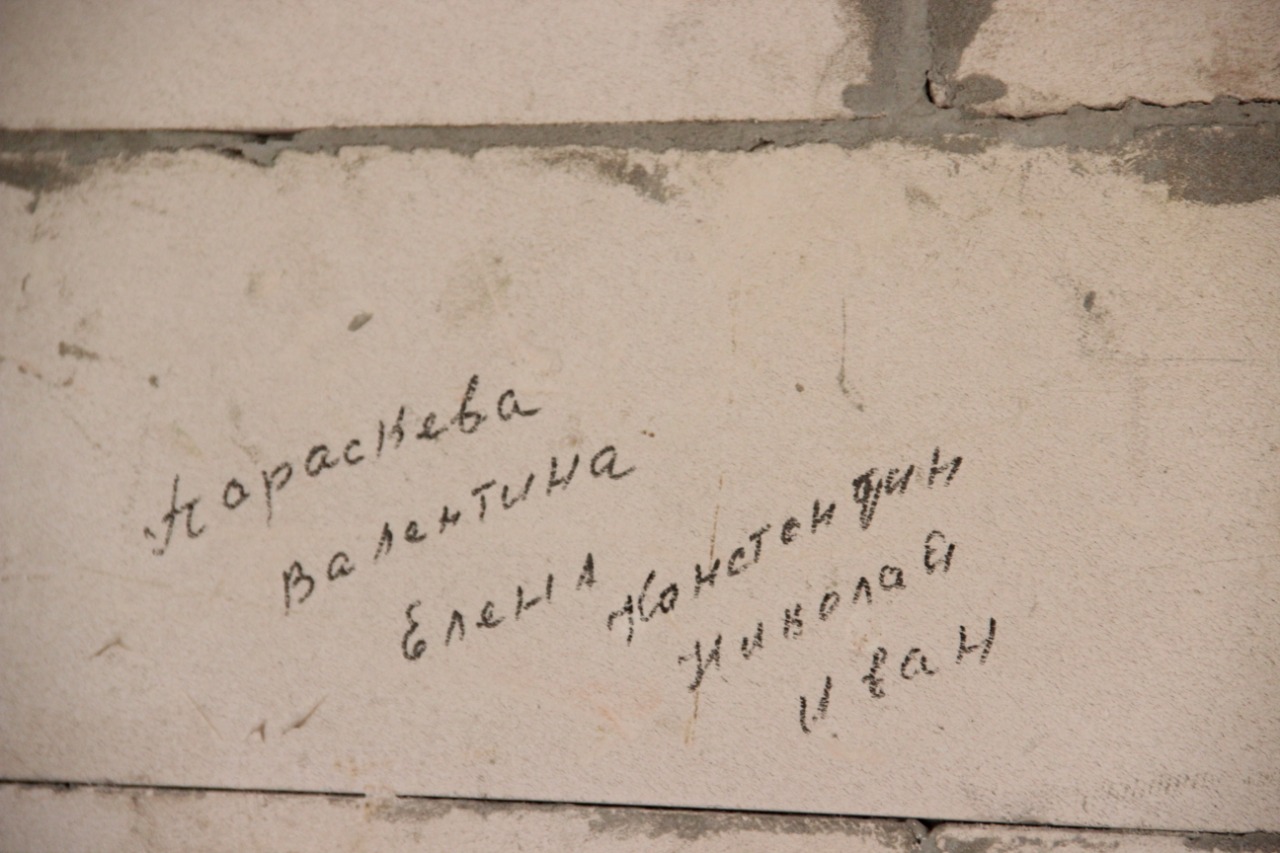 Параскева
Валентина
Елена
Константин
Николай
Иван